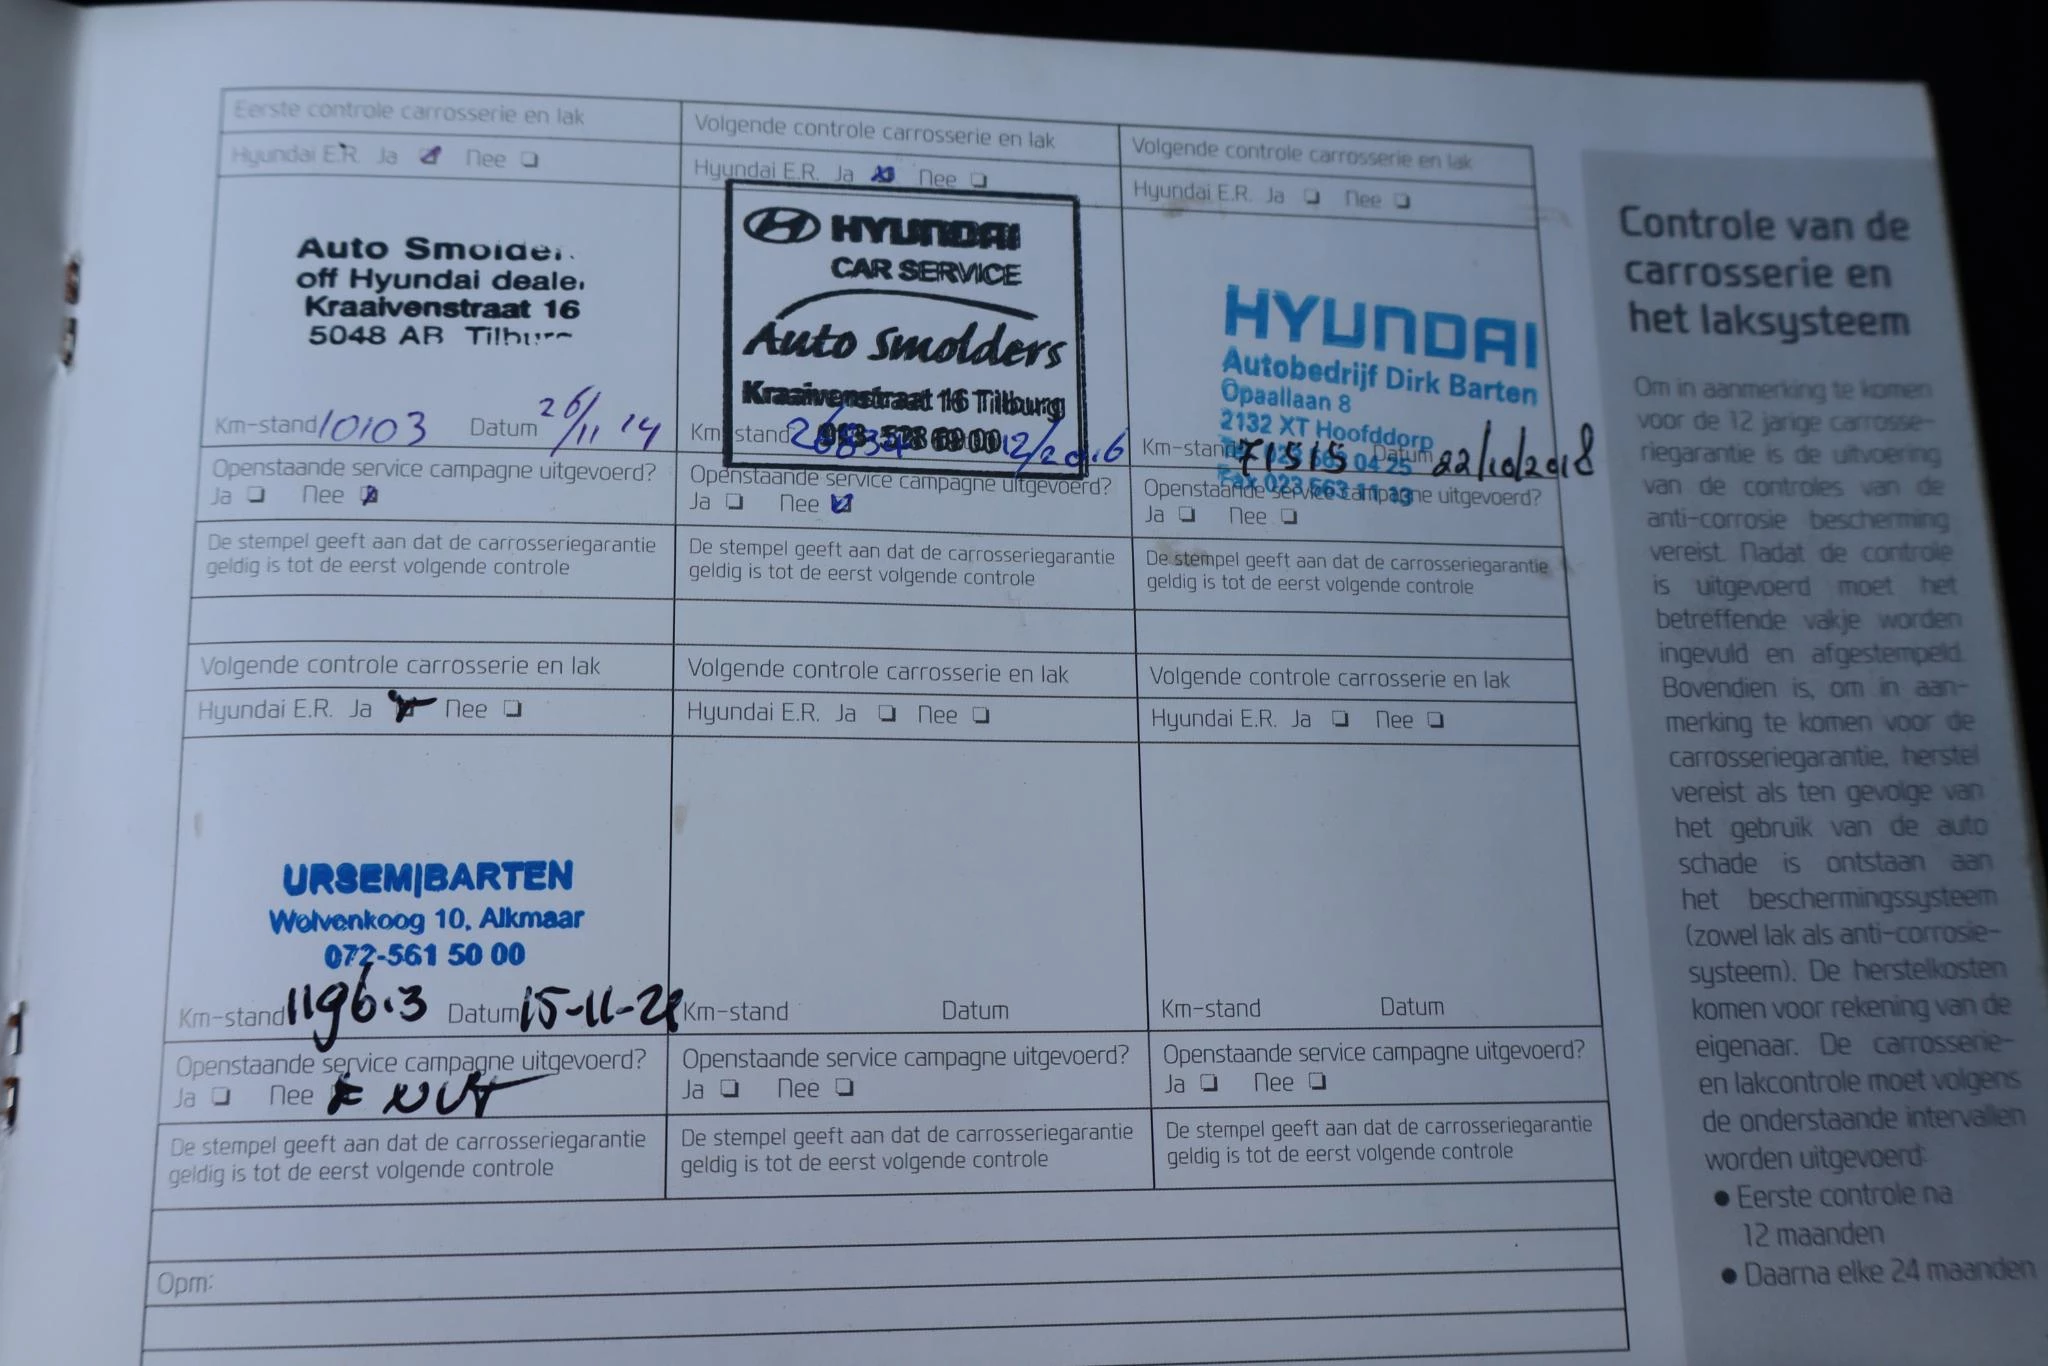 Eerste controle carrosserie en lak
Hyundai E.R. Ja Nee
Auto Smolder
off Hyundai deale
Kraaivenstraat 16
5048 AB Tilburg
Km-stand 10103 Datum 26/11 '14
Openstaande service campagne uitgevoerd?
Ja Nee
De stempel geeft aan dat de carrosseriegarantie
geldig is tot de eerst volgende controle
Volgende controle carrosserie en lak
Hyundai E.R. Ja Nee
HYUNDAI
CAR SERVICE
Auto Smolders
Kraaivenstraat 16 Tilburg
Km-stand 12/2016
Openstaande service campagne uitgevoerd?
Ja Nee
De stempel geeft aan dat de carrosseriegarantie
geldig is tot de eerst volgende controle
Volgende controle carrosserie en lak
Hyundai E.R. Ja Nee
HYUNDAI
Autobedrijf Dirk Barten
Opaallaan 8
2132 XT Hoofddorp
Km-stand 71515 Datum 22/10/2018
Fax 023 563 11 13
Openstaande service campagne uitgevoerd?
Ja Nee
De stempel geeft aan dat de carrosseriegarantie
geldig is tot de eerst volgende controle
Volgende controle carrosserie en lak
Hyundai E.R. Ja Nee
URSEM|BARTEN
Wolvenkoog 10, Alkmaar
072-561 50 00
Km-stand Datum 15-11-21
Openstaande service campagne uitgevoerd?
Ja Nee
De stempel geeft aan dat de carrosseriegarantie
geldig is tot de eerst volgende controle
Volgende controle carrosserie en lak
Hyundai E.R. Ja Nee
Km-stand Datum
Openstaande service campagne uitgevoerd?
Ja Nee
De stempel geeft aan dat de carrosseriegarantie
geldig is tot de eerst volgende controle
Volgende controle carrosserie en lak
Hyundai E.R. Ja Nee
Km-stand Datum
Openstaande service campagne uitgevoerd?
Ja Nee
De stempel geeft aan dat de carrosseriegarantie
geldig is tot de eerst volgende controle
Opm:
Controle van de
carrosserie en
het laksysteem
Om in aanmerking te komen
voor de 12 jarige carrosse-
riegarantie is de uitvoering
van de controles van de
anti-corrosie bescherming
vereist. Nadat de controle
is uitgevoerd moet het
betreffende vakje worden
ingevuld en afgestempeld.
Bovendien is, om in aan-
merking te komen voor de
carrosseriegarantie, herstel
vereist als ten gevolge van
het gebruik van de auto
schade is ontstaan aan
het beschermingssysteem
(zowel lak als anti-corrosie-
systeem). De herstelkosten
komen voor rekening van de
eigenaar. De carrosserie-
en lakcontrole moet volgens
de onderstaande intervallen
worden uitgevoerd:
● Eerste controle na
12 maanden
● Daarna elke 24 maanden